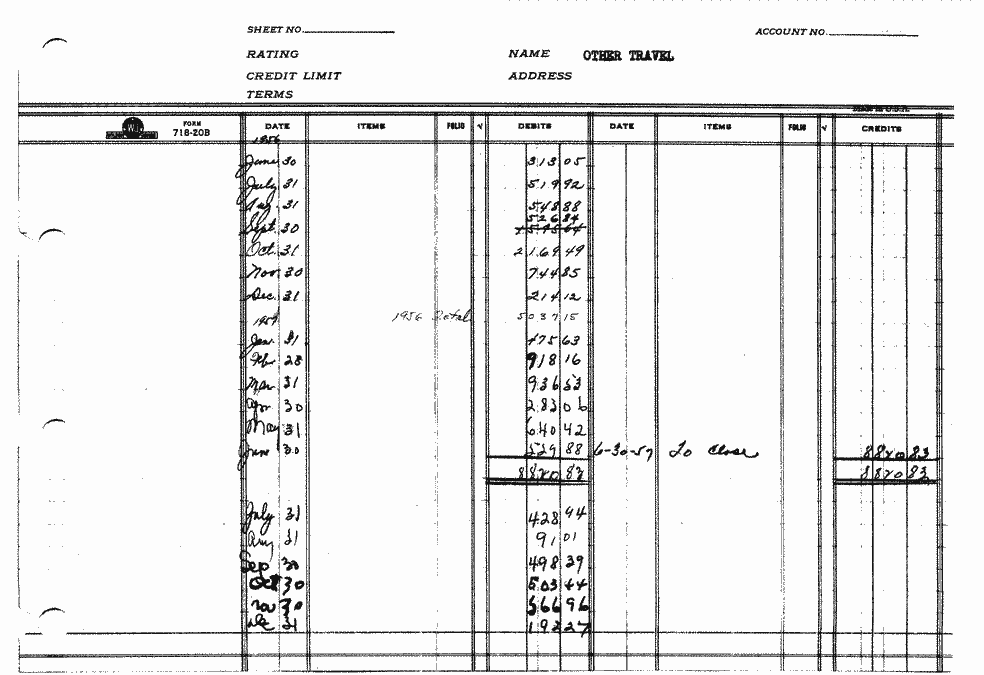 SHEET NO.
ACCOUNT NO.
RATING
NAME OTHER TRAVEL
CREDIT LIMIT
ADDRESS
TERMS
FORM 718-20B
DATE ITEMS FOLIO √ DEBITS DATE ITEMS FOLIO √ CREDITS
1956
June 30 313 05
July 31 519 92
Aug. 31 548 88
526 84
Sept. 30
Oct. 31 2169 49
Nov 30 744 85
Dec. 31 214 12
1956 Total 5037 15
1957
Jan 31 475 63
Feb 28 918 16
Mar 31 936 53
Apr 30 283 06
May 31 640 42
June 30 529 88 6-30-57 To Close 8820 83
8820 83 8820 83
July 31 428 94
Aug 31 91 01
Sep 30 498 39
Oct 30 503 44
Nov 30 566 96
Dec 31 192 27